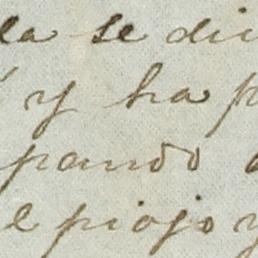 la se di
y ha p
pando
el piojo y